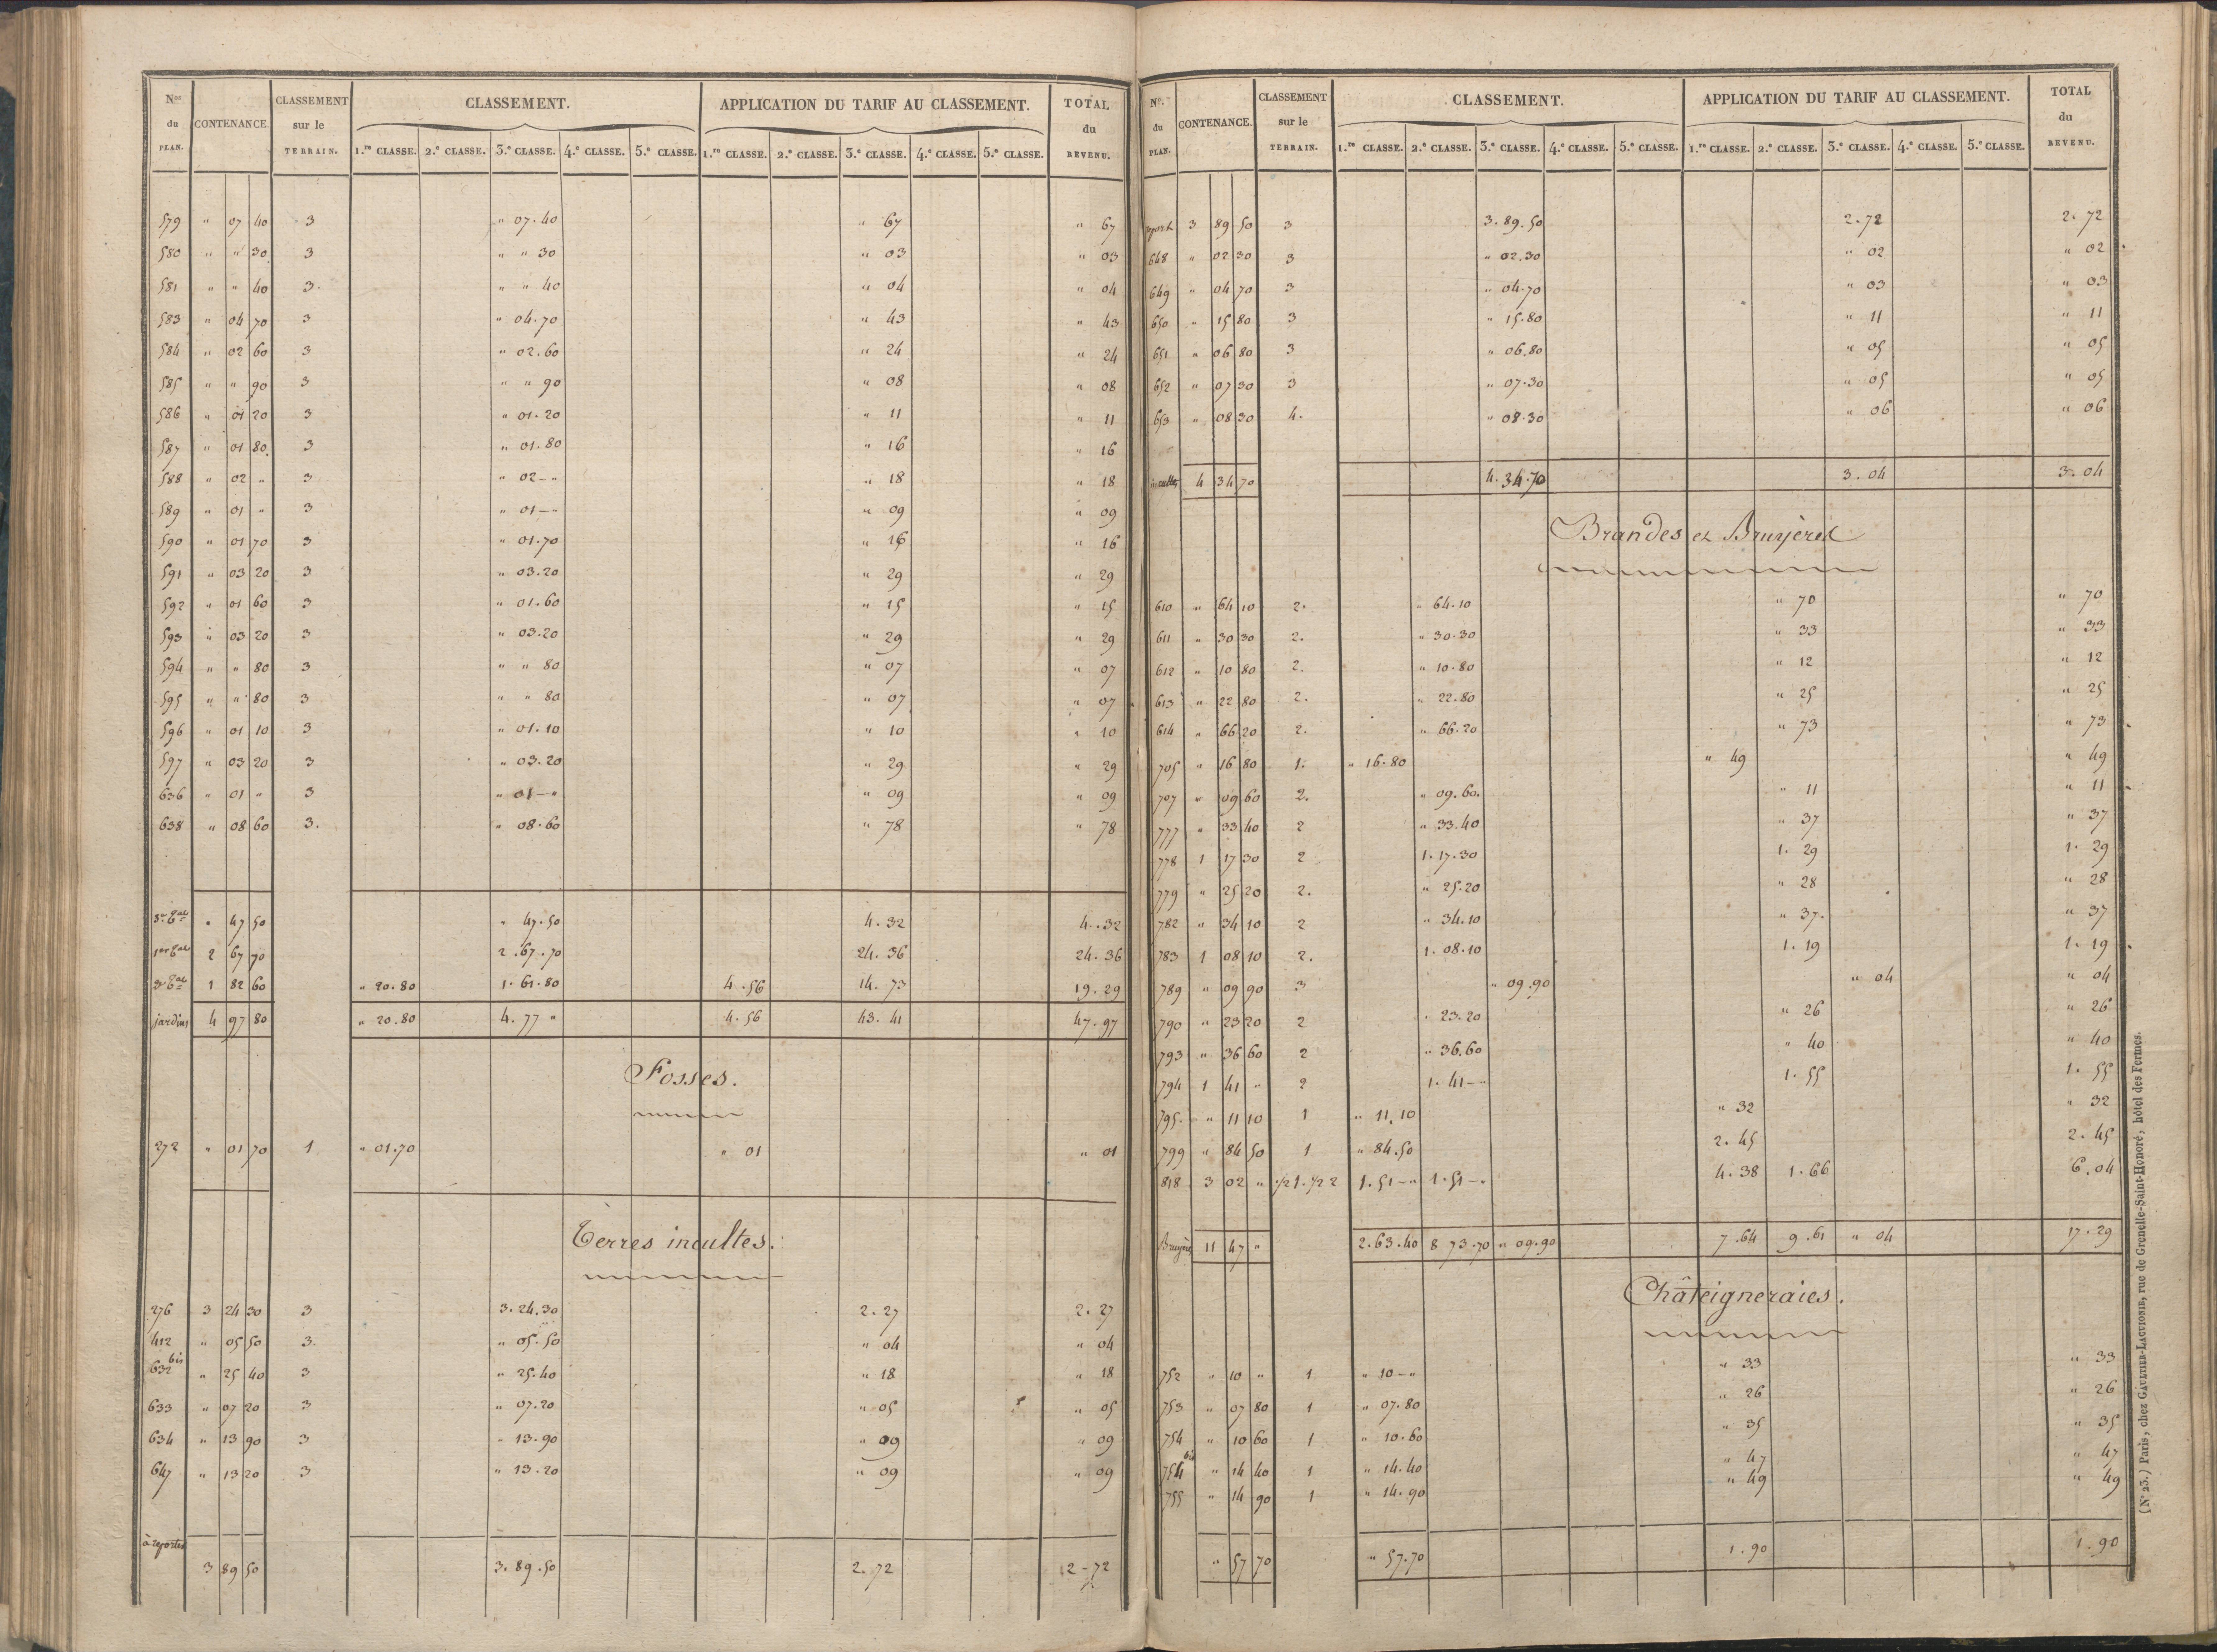 Nos du PLAN. CONTENANCE. CLASSEMENT sur le TERRAIN. CLASSEMENT. APPLICATION DU TARIF AU CLASSEMENT. TOTAL du REVENU.
1.re CLASSE. 2.e CLASSE. 3.e CLASSE. 4.e CLASSE. 5.e CLASSE. 1.re CLASSE. 2.e CLASSE. 3.e CLASSE. 4.e CLASSE. 5.e CLASSE.
579 " 07 40 3 " 07.40 " 67 " 67
580 " " 30 3 " " 30 " 03 " 03
581 " " 40 3. " " 40 " 04 " 04
583 " 04 70 3 " 04.70 " 43 " 43
584 " 02 60 3 " 02.60 " 24 " 24
585 " " 90 3 " " 90 " 08 " 08
586 " 01 20 3 " 01.20 " 11 " 11
587 " 01 80 3 " 01.80 " 16 " 16
588 " 02 " 3 " 02-" " 18 " 18
589 " 01 " 3 " 01-" " 09 " 09
590 " 01 70 3 " 01.70 " 16 " 16
591 " 03 20 3 " 03.20 " 29 " 29
592 " 01 60 3 " 01.60 " 15 " 15
593 " 03 20 3 " 03.20 " 29 " 29
594 " " 80 3 " " 80 " 07 " 07
595 " " 80 3 " " 80 " 07 " 07
596 " 01 10 3 " 01.10 " 10 " 10
597 " 03 20 3 " 03.20 " 29 " 29
636 " 01 " 3 " 01-" " 09 " 09
638 " 08 60 3. " 08.60 " 78 " 78
" 47 50 " 47.50 4.32 4.32
2 67 70 2.67.70 24.36 24.36
1 82 60 " 20.80 1.61.80 4.56 14.73 19.29
jardins 4 97 80 " 20.80 4.77 " 4.56 43.41 47.97
Fosses.
272 " 01 70 1 " 01.70 " 01 " 01
Terres incultes.
276 3 24 30 3 3.24.30 2.27 2.27
412 " 05 50 3. " 05.50 " 04 " 04
632 bis " 25 40 3 " 25.40 " 18 " 18
633 " 07 20 3 " 07.20 " 05 " 05
634 " 13 90 3 " 13.90 " 09 " 09
647 " 13 20 3 " 13.20 " 09 " 09
à reporter 3 89 50 3.89.50 2.72 2-72
No. du PLAN. CONTENANCE. CLASSEMENT sur le TERRAIN. CLASSEMENT. APPLICATION DU TARIF AU CLASSEMENT. TOTAL du REVENU.
1.re CLASSE. 2.e CLASSE. 3.e CLASSE. 4.e CLASSE. 5.e CLASSE. 1.re CLASSE. 2.e CLASSE. 3.e CLASSE. 4.e CLASSE. 5.e CLASSE.
report 3 89 50 3 3.89.50 2.72 2.72
648 " 02 30 3 " 02.30 " 02 " 02
649 " 04 70 3 " 04.70 " 03 " 03
650 " 15 80 3 " 15.80 " 11 " 11
651 " 06 80 3 " 06.80 " 05 " 05
652 " 07 30 3 " 07.30 " 05 " 05
653 " 08 30 4. " 08.30 " 06 " 06
incultes 4 34 70 4.34.70 3.04 3.04
Brandes et Bruyères
610 " 64 10 2. " 64.10 " 70 " 70
611 " 30 30 2. " 30.30 " 33 " 33
612 " 10 80 2. " 10.80 " 12 " 12
613 " 22 80 2. " 22.80 " 25 " 25
614 " 66 20 2. " 66.20 " 73 " 73
705 " 16 80 1. " 16.80 " 49 " 49
707 " 09 60 2. " 09.60. " 11 " 11
777 " 33 40 2 " 33.40 " 37 " 37
778 1 17 30 2 1.17.30 1.29 1.29
779 " 25 20 2. " 25.20 " 28 " 28
782 " 34 10 2 " 34.10 " 37. " 37
783 1 08 10 2. 1.08.10 1.19 1.19
789 " 09 90 3 " 09.90 " 04 " 04
790 " 23 20 2 " 23.20 " 26 " 26
793 " 36 60 2 " 36.60 " 40 " 40
794 1 41 " 2 1.41-" 1.55 1.55
795. " 11 10 1 " 11.10 " 32 " 32
799 " 84 50 1 " 84.50 2.45 2.45
818 3 02 " 1/2 1. 1/2 2 1.51-" 1.51-" 4.38 1.66 6.04
Bruyère 11 47 " 2.63.40 8 73.70 " 09.90 7.64 9.61 " 04 17.29
Châteigneraies.
752 " 10 " 1 " 10-" " 33 " 33
753 " 07 80 1 " 07.80 " 26 " 26
754 " 10 60 1 " 10.60 " 35 " 35
754 bis " 14 40 1 " 14.40 " 47 " 47
755 " 14 90 1 " 14.90 " 49 " 49
" 57 70 " 57.70 1.90 1.90
(No 23.) Paris, chez GAULTIER-LAGUIONIE, rue de Grenelle-Saint-Honoré, hôtel des Fermes.